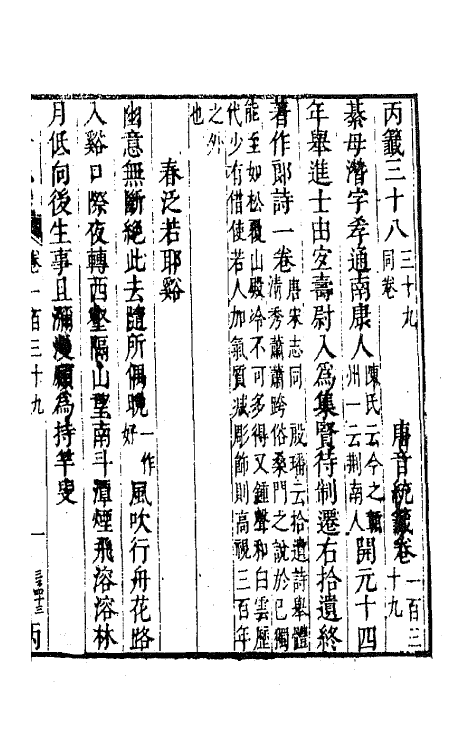 丙籤三十八 三十九同卷 唐音統籤卷一百三十九
綦母潛字孝通南康人陳氏云今之贛州一云荆南人開元十四
年舉進士由宜壽尉入為集賢待制遷右拾遺終
著作郎詩一卷唐宋志同 殷璠云拾遺詩舉體
清秀蕭蕭跨俗桑門之說於已獨
能至如松覆山殿冷不可多得又鍾聲和白雲歷
代少有借使若人加氣質減彫飾則高視三百年
之外
也
春泛若耶谿
幽意無斷絕此去隨所偶晚一作好風吹行舟花路
入谿口際夜轉西壑隔山望南斗潭煙飛溶溶林
月低向後生事且瀰漫願為持竿叟
卷一百三十九 一 丙